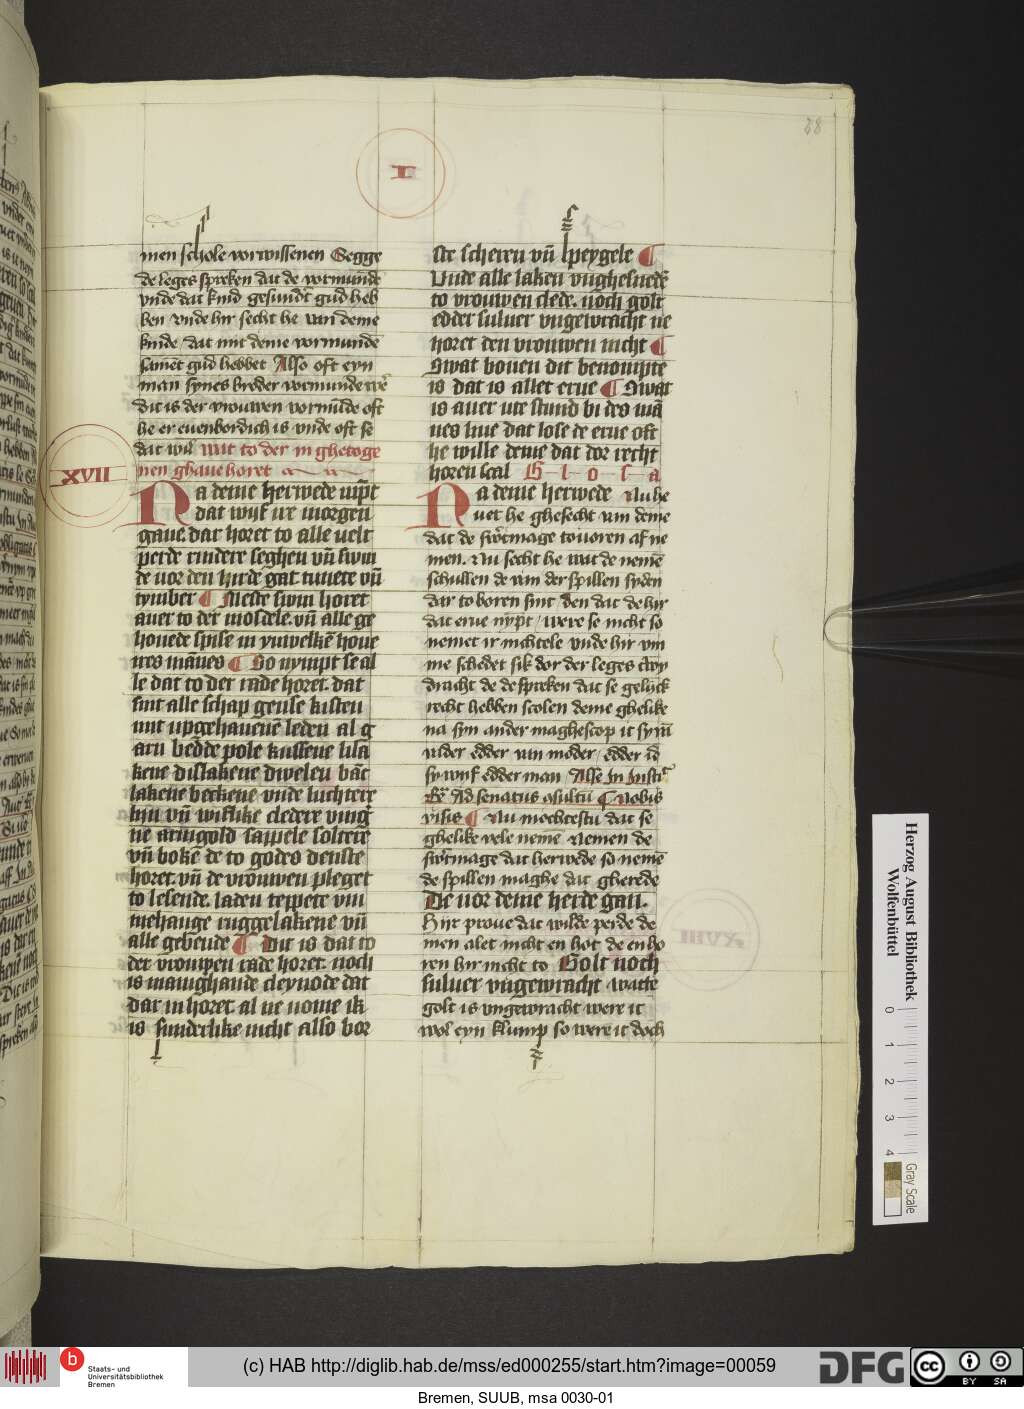 28
I
men schole vorwissenen Segge
de leges spreken dat de vormunde
vnde dat kind gesundert gud heb
ben vnde hir secht he van deme
kinde dat mit deme vormunde
sament gud hebbet Also oft eyn
man synes broder vormunde
dit is der vrouwen vormunde oft
he er euenbordich is vnde oft se
dat wil Wat to der in ghetoge
nen ghaue horet
XVII
Na deme herwede nipt
dat wif ire morgen
gaue dat horet to alle velt
perde rindere seghen vnde swin
de vor den hirde gat tunete vnde
tymber ¶ Meste swin horet
auer to der mosdele. vnde alle ge
houede spise in yuwelken houe
ires mannes ¶ So nympt se al
le dat to der rade horet. dat
sint alle schap gense kisten
mit upgehauenen leden al g
arn bedde pole kussene lila
kene dislakene dwelen bat
lakene beckene vnde luchtere
lyn vnde wiflike cledere ving
ne armgold sappele soltere
vnde boke de to godes denste
horet. vnde de vrouwen pleget
to lesende. laden teppete vm
mehange ruggelakene vnde
alle gebende ¶ Dit is dat to
der vrouwen rade horet. noch
is manighande cleynode dat
dar in horet al ne nome ik
is sunderlike nicht also bor
ste scheren vnde speygele ¶
Vnde alle laken vnghesnede
to vrouwen clede. noch golt
edder suluer vngewracht ne
horet den vrouwen nicht ¶
Swat bouen dit benompte
is dat is allet erue ¶ Swat
is auer ute stund bi des man
nes liue dat lose de erue oft
he wille deme dat dor recht
horen scal Glosa
Na deme herwede Nu he
uet he ghesecht van deme
dat de swertmage touoren af ne
men. Nu secht he wat de nemen
schullen de van der spillen syden
dar to boren sint den dat de hir
dat erue nypt / were se nicht so
nemet ir nichtele vnde hir vm
me schedet sik dor der leges twy
dracht de de spreken dat se gelyck
recht hebben scolen deme ghelike
na syn ander magheschop it sy van
vader edder van moder / edder id
sy wif edder man / Alse In Insti
Ad senatus osultu ¶ Nobis
visis ¶ Nu mochtestu dat se
ghelike vele nemen Nemen de
swertmage dat herwede so nemen
de spillen maghe dat gherede
De vor deme herde gan.
Hir proue dat wilde perde de
men alet nicht en hot de enho
ren hir nicht to Golt noch
suluer vngewracht Watte
golt is vngewracht were it
wol eyn klump so were it doch
Herzog August Bibliothek
Wolfenbüttel
0 1 2 3 4
Gray Scale
b
Staats- und
Universitätsbibliothek
Bremen
(c) HAB http://diglib.hab.de/mss/ed000255/start.htm?image=00059
DFG
cc
BY SA
Bremen, SUUB, msa 0030-01